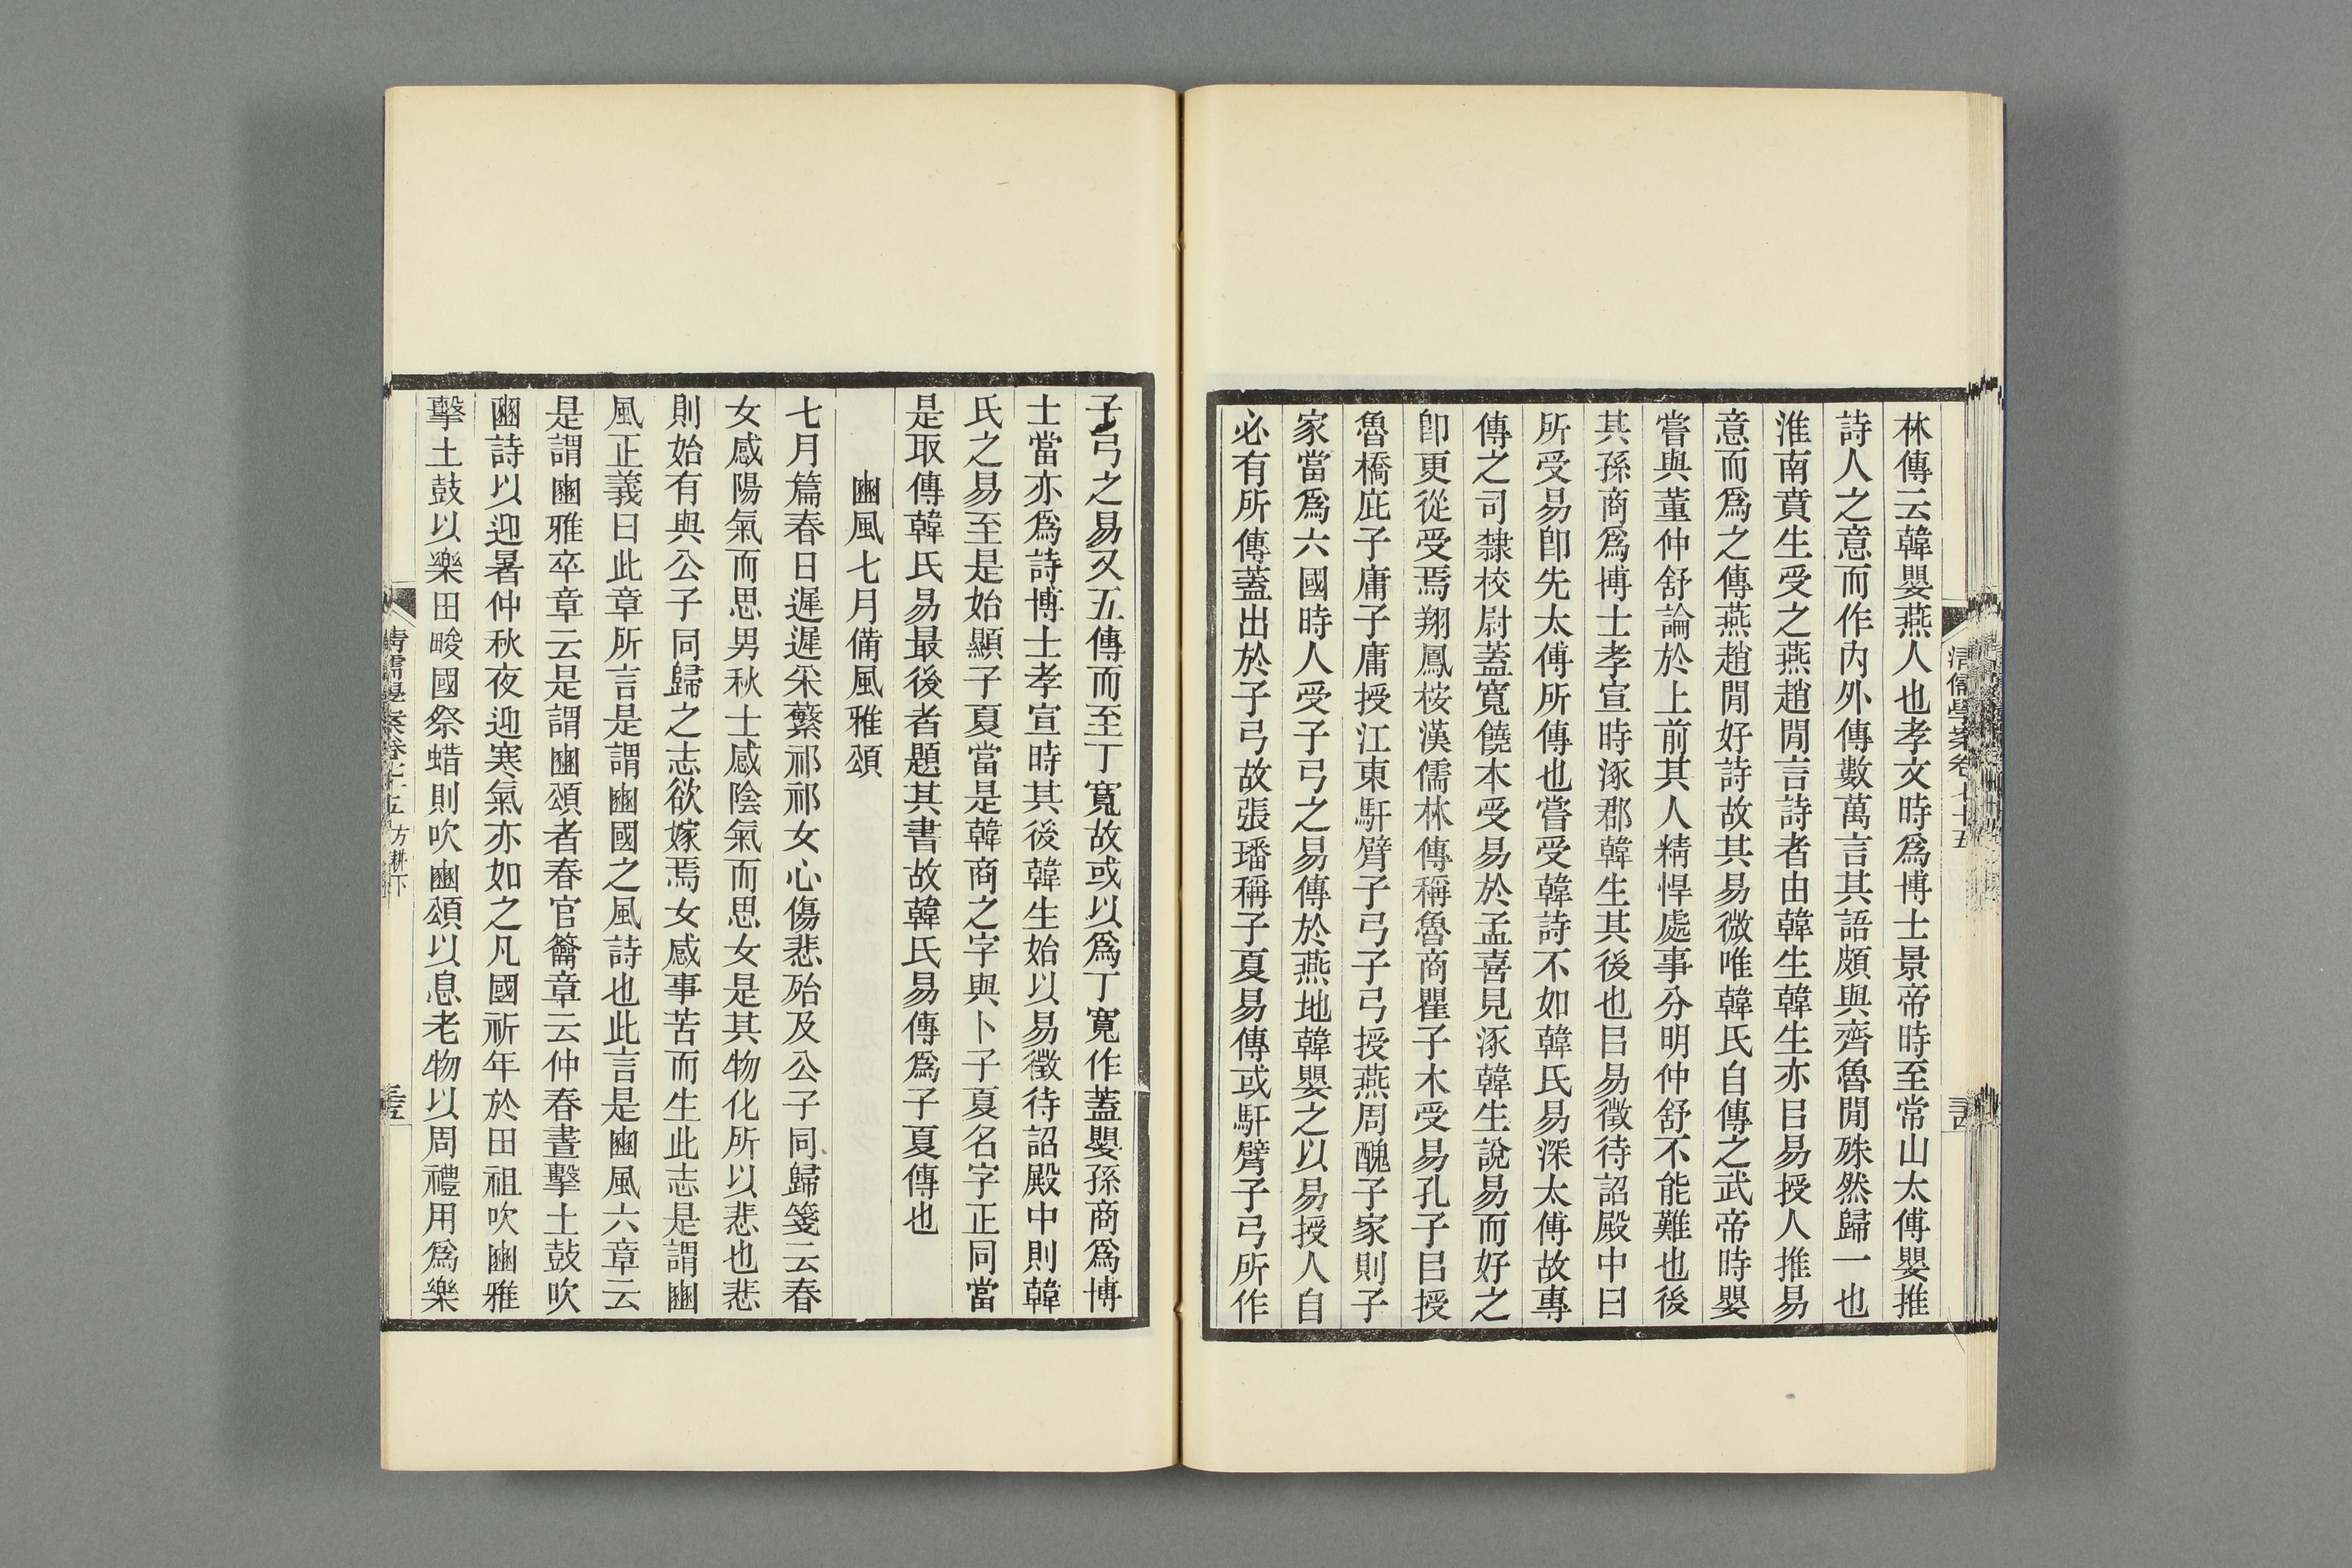 林傳云韓嬰燕人也孝文時爲博士景帝時至常山太傅嬰推
詩人之意而作內外傳數萬言其語頗與齊魯閒殊然歸一也
淮南賁生受之燕趙閒言詩者由韓生韓生亦㠯易授人推易
意而爲之傳燕趙閒好詩故其易微唯韓氏自傳之武帝時嬰
嘗與董仲舒論於上前其人精悍處事分明仲舒不能難也後
其孫商爲博士孝宣時涿郡韓生其後也㠯易徵待詔殿中曰
所受易卽先太傅所傳也嘗受韓詩不如韓氏易深太傅故專
傳之司隸校尉蓋寬饒本受易於孟喜見涿韓生說易而好之
卽更從受焉翔鳳桉漢儒林傳稱魯商瞿子木受易孔子㠯授
魯橋庇子庸子庸授江東馯臂子弓子弓授燕周醜子家則子
家當爲六國時人受子弓之易傳於燕地韓嬰之以易授人自
必有所傳蓋出於子弓故張璠稱子夏易傳或馯臂子弓所作
清儒學案卷七十五
三四
子弓之易又五傳而至丁寬故或以爲丁寬作蓋嬰孫商爲博
士當亦爲詩博士孝宣時其後韓生始以易徵待詔殿中則韓
氏之易至是始顯子夏當是韓商之字與卜子夏名字正同當
是取傳韓氏易最後者題其書故韓氏易傳爲子夏傳也
豳風七月備風雅頌
七月篇春日遲遲采蘩祁祁女心傷悲殆及公子同歸箋云春
女感陽氣而思男秋士感陰氣而思女是其物化所以悲也悲
則始有與公子同歸之志欲嫁焉女感事苦而生此志是謂豳
風正義曰此章所言是謂豳國之風詩也此言是豳風六章云
是謂豳雅卒章云是謂豳頌者春官籥章云仲春晝擊土鼓吹
豳詩以迎暑仲秋夜迎寒氣亦如之凡國祈年於田祖吹豳雅
擊土鼓以樂田畯國祭蜡則吹豳頌以息老物以周禮用爲樂
清儒學案卷七十五 方耕下
三五